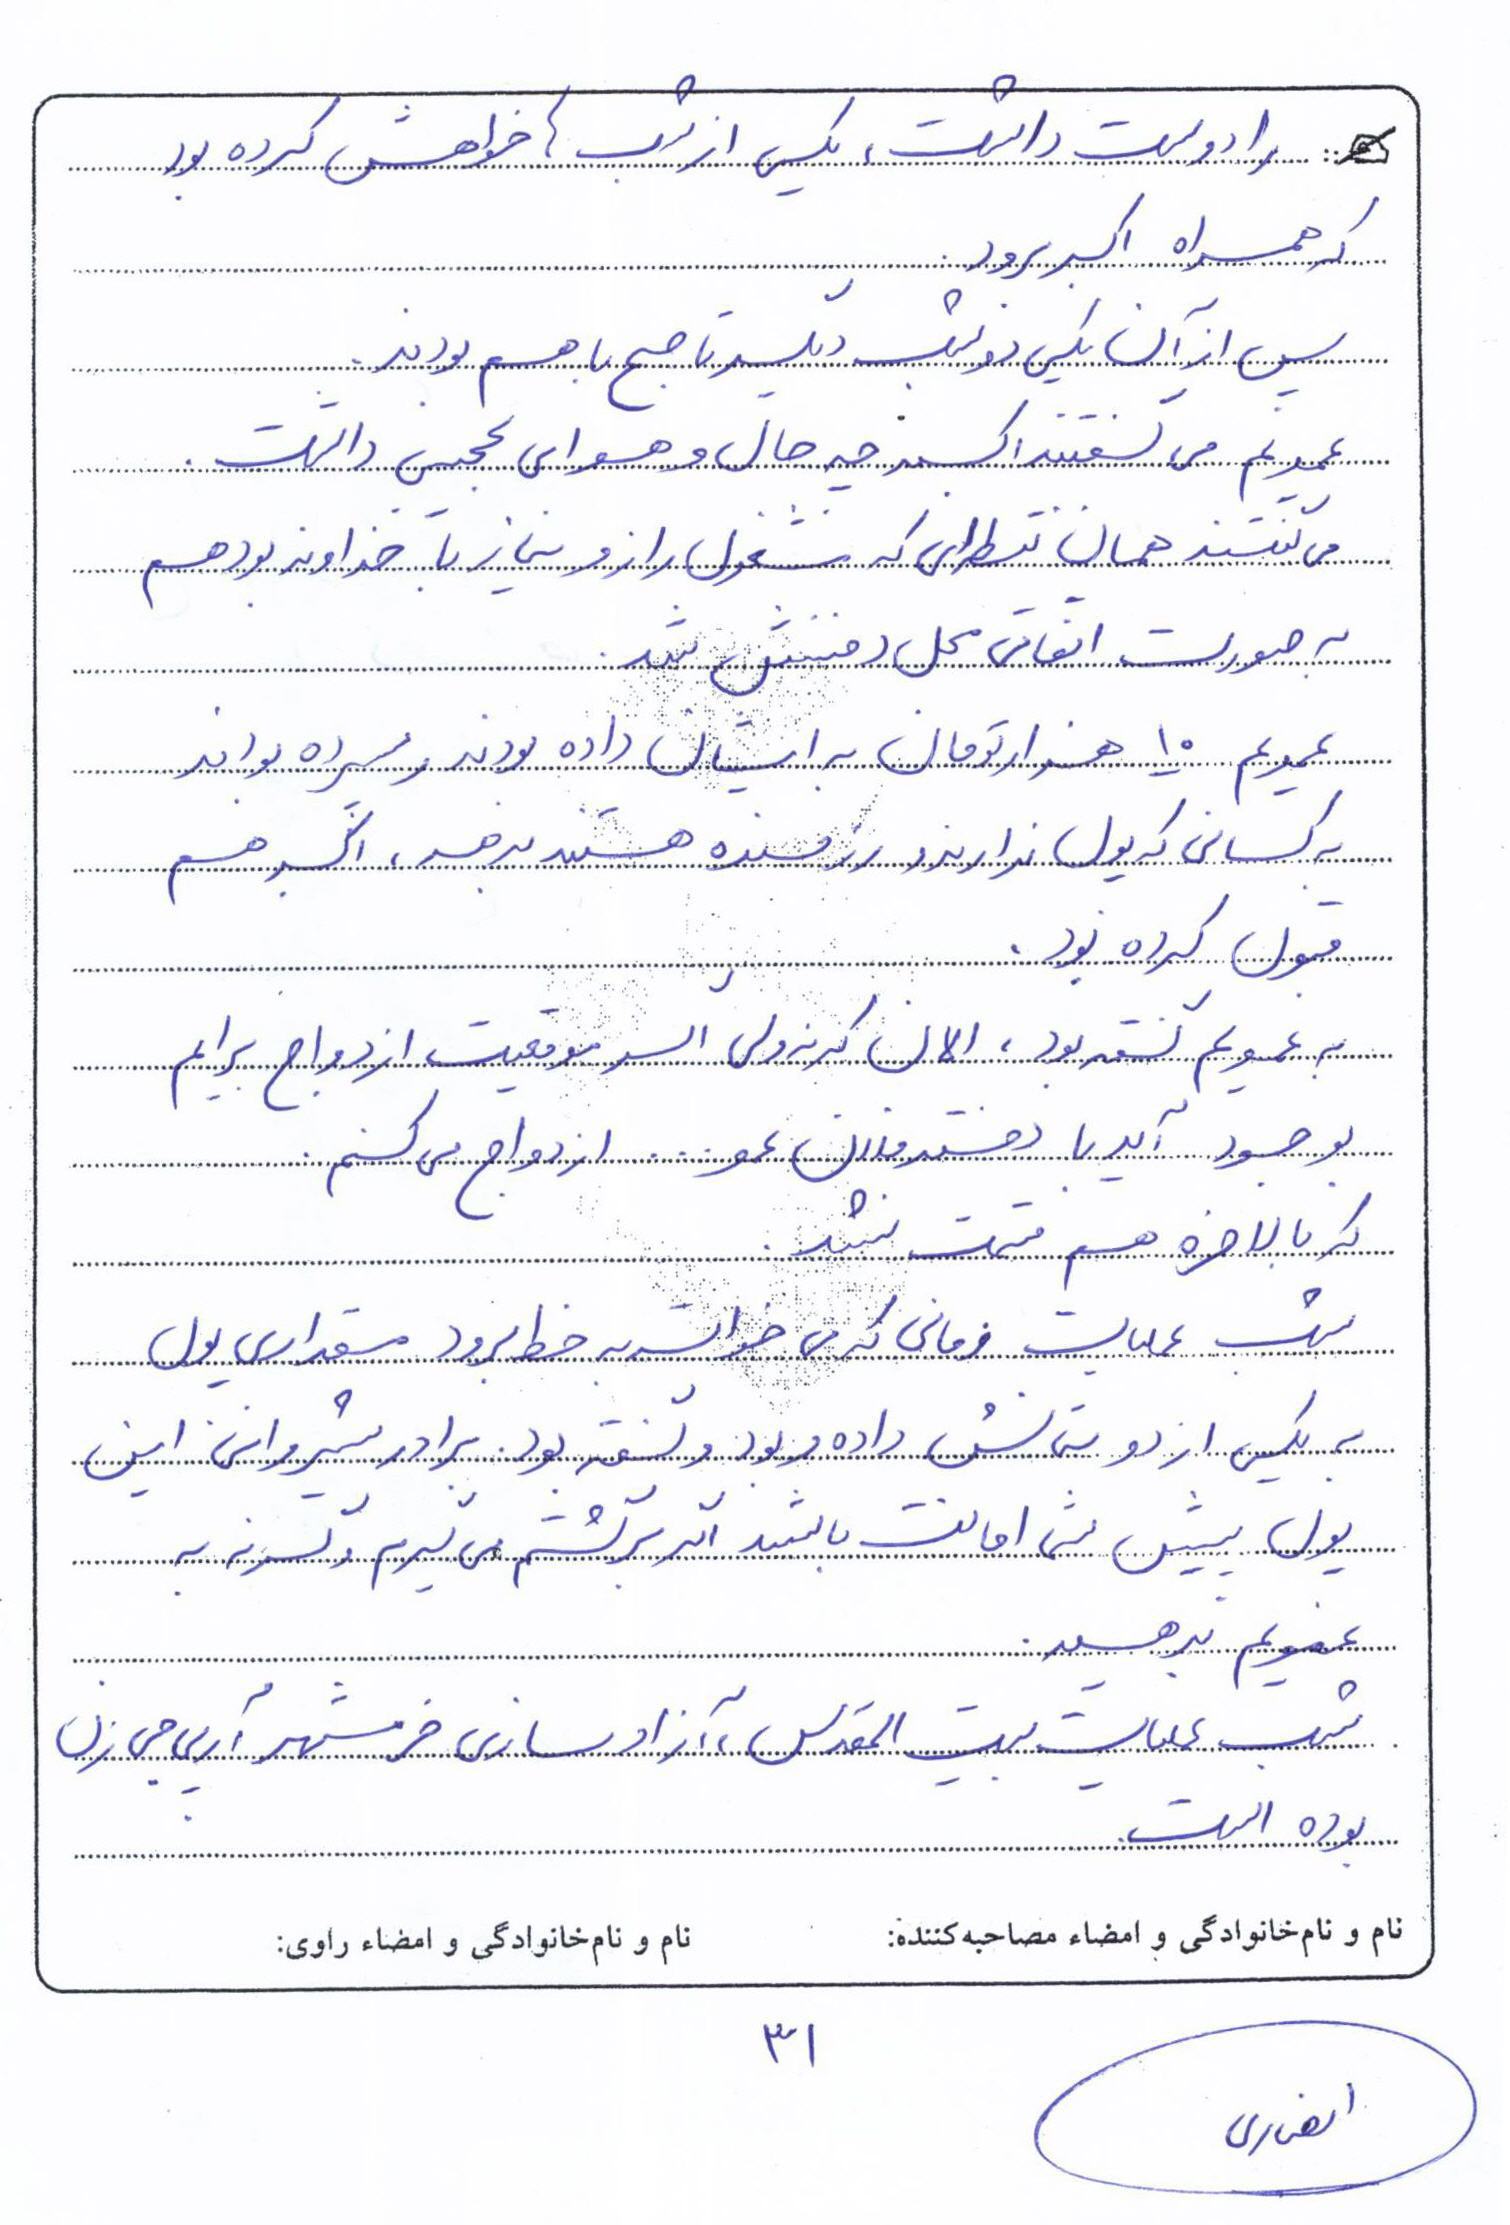 را دوست داشت، یکی از شب ها خواهش کرده بود
که همراه اکبر برود.
پس از آن یکی دو شب دیگر تا صبح با هم بودند.
عمویم می گفتند اکبر چه حال و هوای عجیبی داشت.
می گفتند همان که مشغول راز و نیاز با خداوند بود هم
به صورت اتفاقی محل دفنش شد.
عمویم ۱۰ هزار تومان به ایشان داده بودند و سپرده بودند
به کسانی که پول ندارند و رزمنده هستند بدهد، اکبر هم
قبول کرده بود.
به عمویم گفته بود، الان که نه ولی اگر موقعیت ازدواج برایم
بوجود آید با دختر فلان عمو ... ازدواج می کنم.
که بالاخره هم قسمت نشد.
شب عملیات زمانی که می خواست به خط برود مقداری پول
به یکی از دوستانش داده بود و گفته بود. برادر شیروانی این
پول پیش شما امانت باشد اگر برگشتم می گیرم وگرنه به
عمویم بدهید.
شب عملیات بیت المقدس، آزادسازی خرمشهر آرپی جی زن
بوده است.
نام و نام‌خانوادگی و امضاء مصاحبه‌کننده:
نام و نام‌خانوادگی و امضاء راوی:
۳۱
انصاری